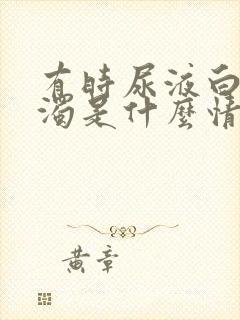 有時尿液白
濁是什麼情
黃章